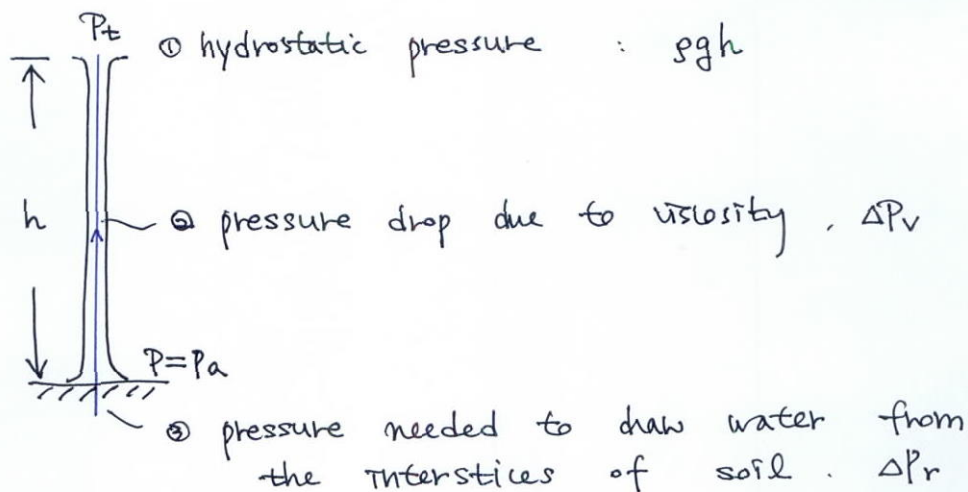 Pt
① hydrostatic pressure : ρgh
h
② pressure drop due to viscosity . ΔPv
P=Pa
③ pressure needed to draw water from
the interstices of soil . ΔPr